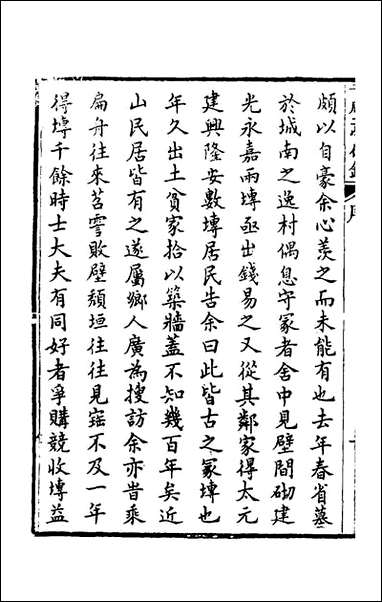 頗以自豪余心羨之而未能有也去年春省墓
於城南之逸村偶息守冢者舍中見壁間砌建
光永嘉兩塼亟出錢易之又從其鄰家得太元
建興隆安數塼居民告余曰此皆古之冢塼也
年久出土貧家拾以築牆蓋不知幾百年矣近
山民居皆有之遂屬鄉人廣為搜訪余亦嘗乘
扁舟往來苕霅敗壁頹垣往往見寤不及一年
得塼千餘時士大夫有同好者爭購競收塼益